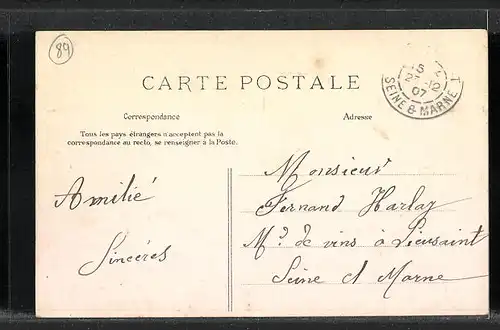 89
CARTE POSTALE
Correspondance
Adresse
Tous les pays étrangers n'acceptent pas la
correspondance au recto, se renseigner à la Poste.
5
12
07
SEINE & MARNE
Monsieur
Fernand Harlay
Md de vins à Lieusaint
Seine et Marne
Amitié
Sincères